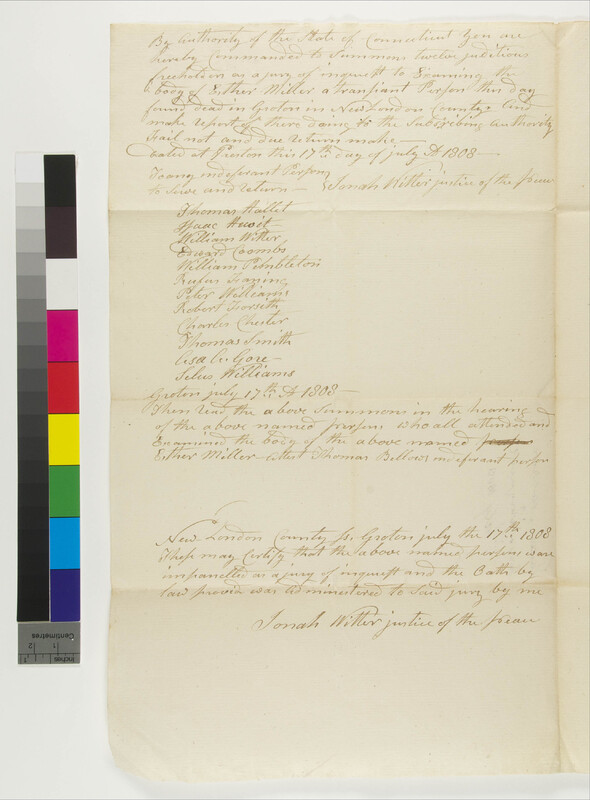 By Authority of the State of Connecticut You are
hereby Commanded to Summons twelve juditious
freeholders as a jury of inquest to Examing the
body of Esther Miller a transiant Person this day
found dead in Groton in New London County and
make report of there doing to the Subscribing Authority
Fail not and due return make
Dated at Preston this 17th day of july AD 1808
To any indeferant Person
to Serve and return Jonah Witter justice of the peace
Thomas Hallet
Isaac Huvit
William Witter
Edward Coombs
William Pembleton
Rufus Faning
Peter Williams
Robert Forseth
Charles Chester
Thomas Smith
Asa L. Gore
Silus Williams
Groton july 17th AD 1808
Then Read the above Summons in the hearing
of the above named persons who all attended and
Examined the body of the above named
Esther Miller Attest Thomas Bellows indeferant person
New London County ss. Groton july the 17th 1808
These may Certify that the above named persons ware
impanelled as a jury of inquest and the Oath by
law provid was administered to said jury by me
Jonah Witter justice of the peace
Centimetres
Inches
1
2